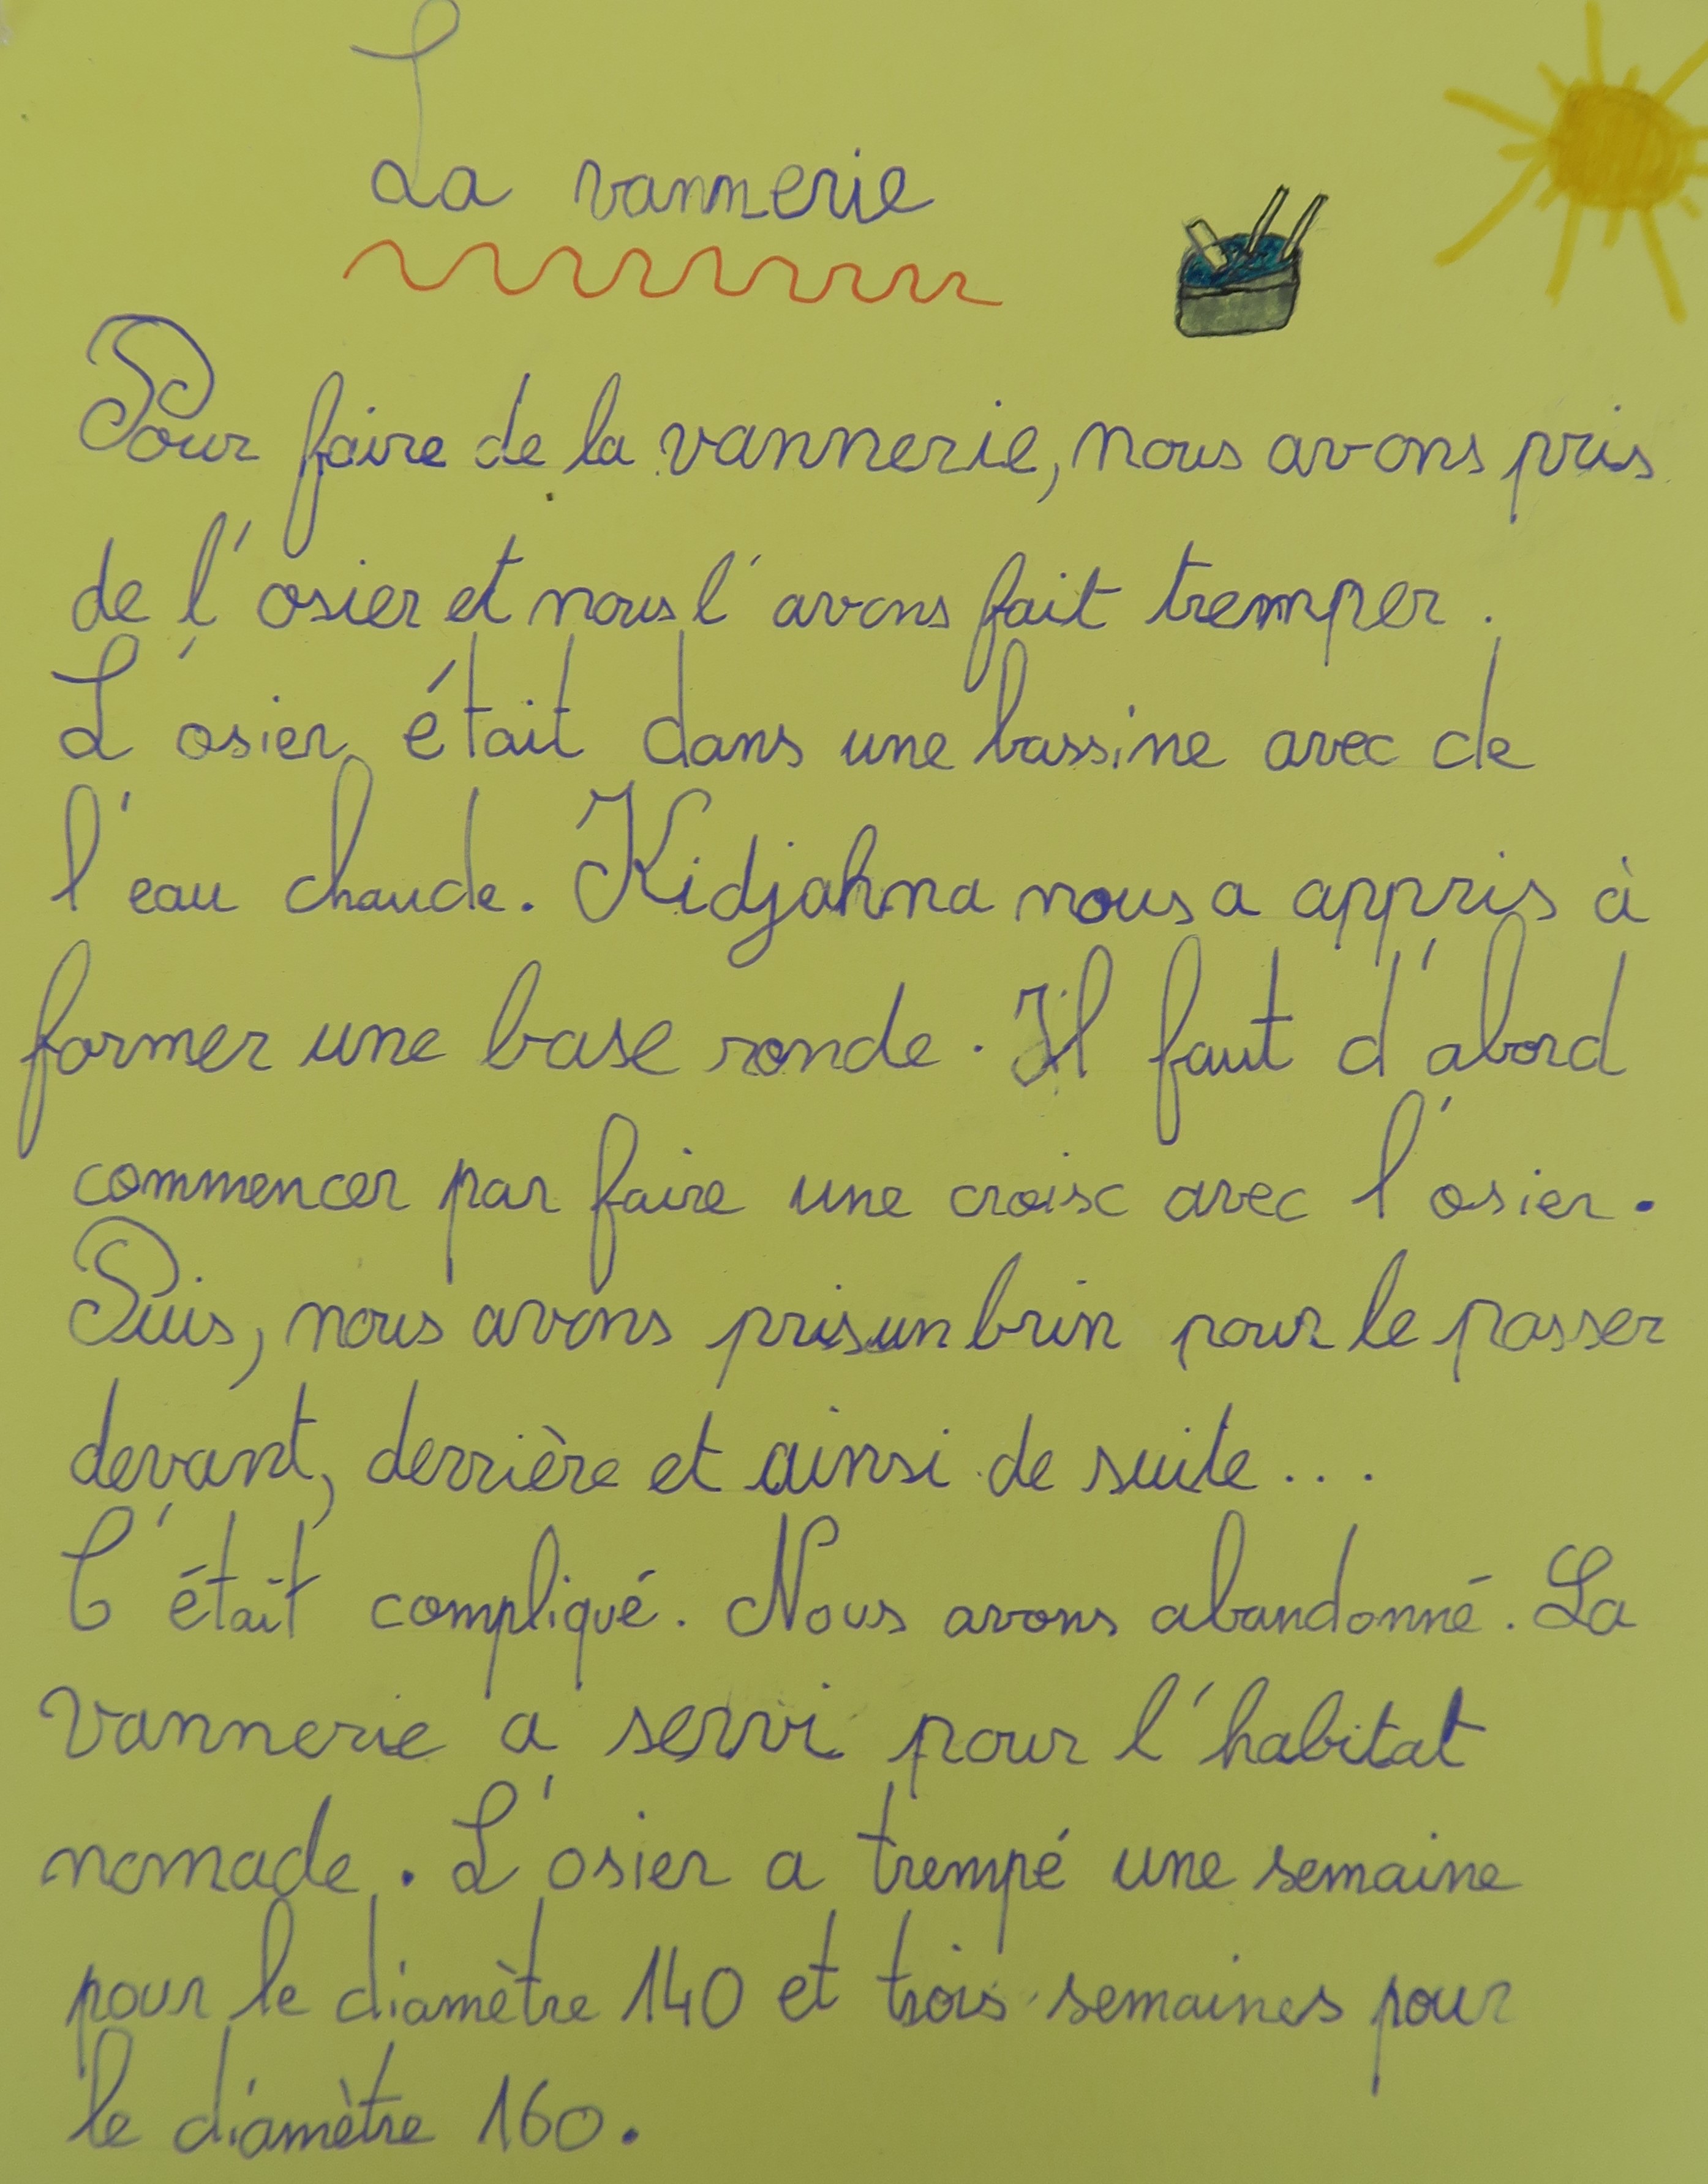 La vannerie
Pour faire de la vannerie, nous avons pris
de l'osier et nous l'avons fait tremper.
L'osier était dans une bassine avec de
l'eau chaude. Kidjahna nous a appris à
former une base ronde. Il faut d'abord
commencer par faire une croisc avec l'osier.
Puis, nous avons pris un brin pour le passer
devant, derrière et ainsi de suite...
C'était compliqué. Nous avons abandonné. La
vannerie a servi pour l'habitat
nomade. L'osier a trempé une semaine
pour le diamètre 140 et trois semaines pour
le diamètre 160.